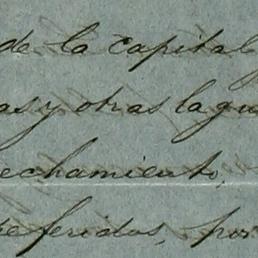 de la capital y
as y otras lagu
echamiento,
referidas, por